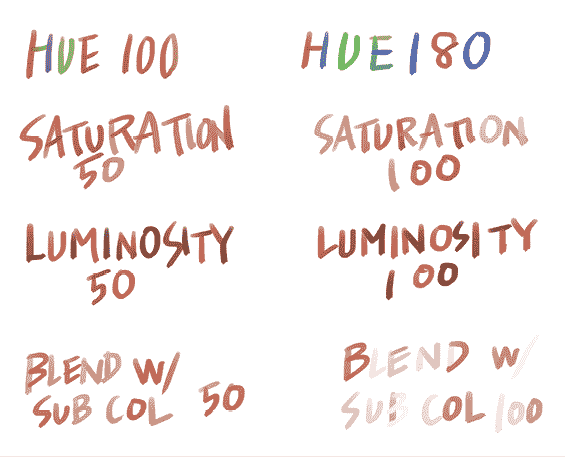 HUE 100
HUE 180
SATURATION
50
SATURATION
100
LUMINOSITY
50
LUMINOSITY
100
BLEND W/
SUB COL 50
BLEND W/
SUB COL 100